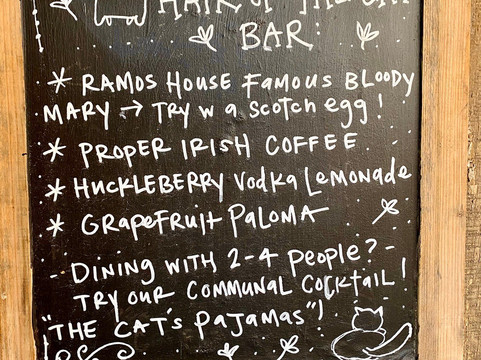 HAIR OF THE CAT
BAR:
* RAMOS HOUSE FAMOUS BLOODY
MARY → TRY W A SCOTCH EGG!
* PROPER IRISH COFFEE
* HUCKLEBERRY VODKA LEMONADE
* GRAPEFRUIT PALOMA
- DINING WITH 2-4 PEOPLE? -
TRY OUR COMMUNAL COCKTAIL!
"THE CAT'S PAJAMAS"!